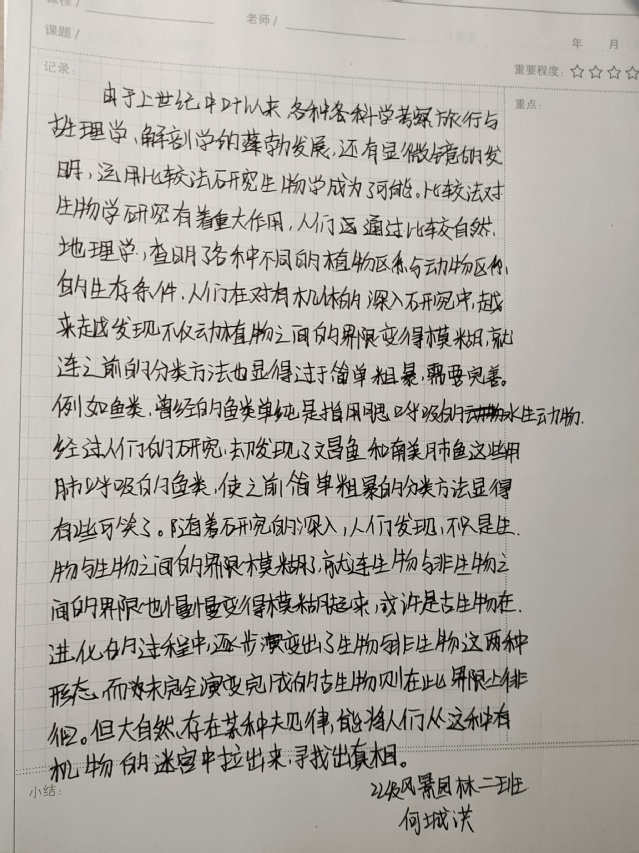 课题/
老师/
年 月
记录:
重要程度: ☆☆☆☆
重点:
由于上世纪中叶以来,各种各科学考察旅行与
胚理学、解剖学的蓬勃发展,还有显微镜的发
明,运用比较法研究生物学成为了可能。比较法对
生物学研究有着重大作用,人们通过比较自然
地理学,查明了各种不同的植物区系与动物区系
的生存条件,人们在对有机体的深入研究中,越
来越发现不仅动植物之间的界限变得模糊,就
连之前的分类方法也显得过于简单粗暴,需要完善。
例如鱼类,曾经的鱼类单纯是指用腮呼吸的水生动物.
经过人们的研究,却发现了文昌鱼和南美肺鱼这些用
肺呼吸的鱼类,使之前简单粗暴的分类方法显得
有些可笑了。随着研究的深入,人们发现,不只是生
物与生物之间的界限模糊了,就连生物与非生物之
间的界限也慢慢变得模糊起来,或许是古生物在
进化的过程中,逐步演变出了生物与非生物这两种
形态,而未完全演变完成的古生物则在此界限上徘
徊。但大自然存在某种规律,能将人们从这种有
机物的迷宫中拉出来,寻找出真相。
小结:
22级风景园林二班
何城洪